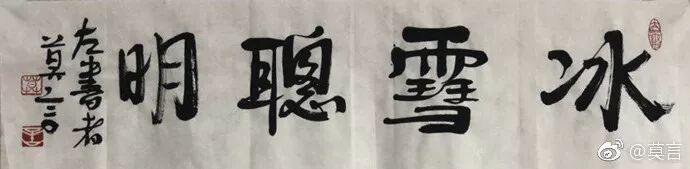 冰雪聰明
左書者
莫言
@莫言